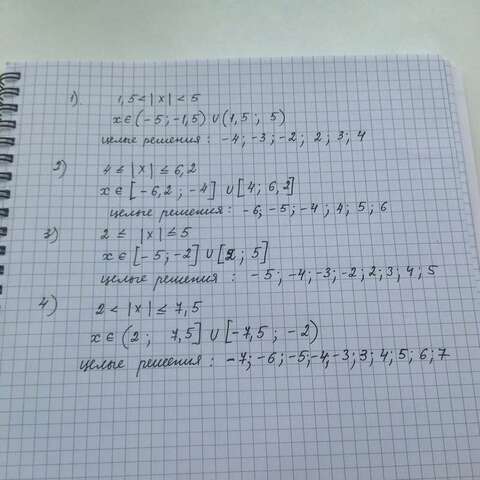 1). 1,5 < |x| < 5
x ∈ (-5; -1,5) ∪ (1,5; 5)
целые решения: -4; -3; -2; 2; 3; 4
2) 4 ≤ |x| ≤ 6,2
x ∈ [-6,2; -4] ∪ [4; 6,2]
целые решения: -6; -5; -4; 4; 5; 6
3) 2 ≤ |x| ≤ 5
x ∈ [-5; -2] ∪ [2; 5]
целые решения: -5; -4; -3; -2; 2; 3; 4; 5
4) 2 < |x| ≤ 7,5
x ∈ (2; 7,5] ∪ [-7,5; -2)
целые решения: -7; -6; -5; -4; -3; 3; 4; 5; 6; 7